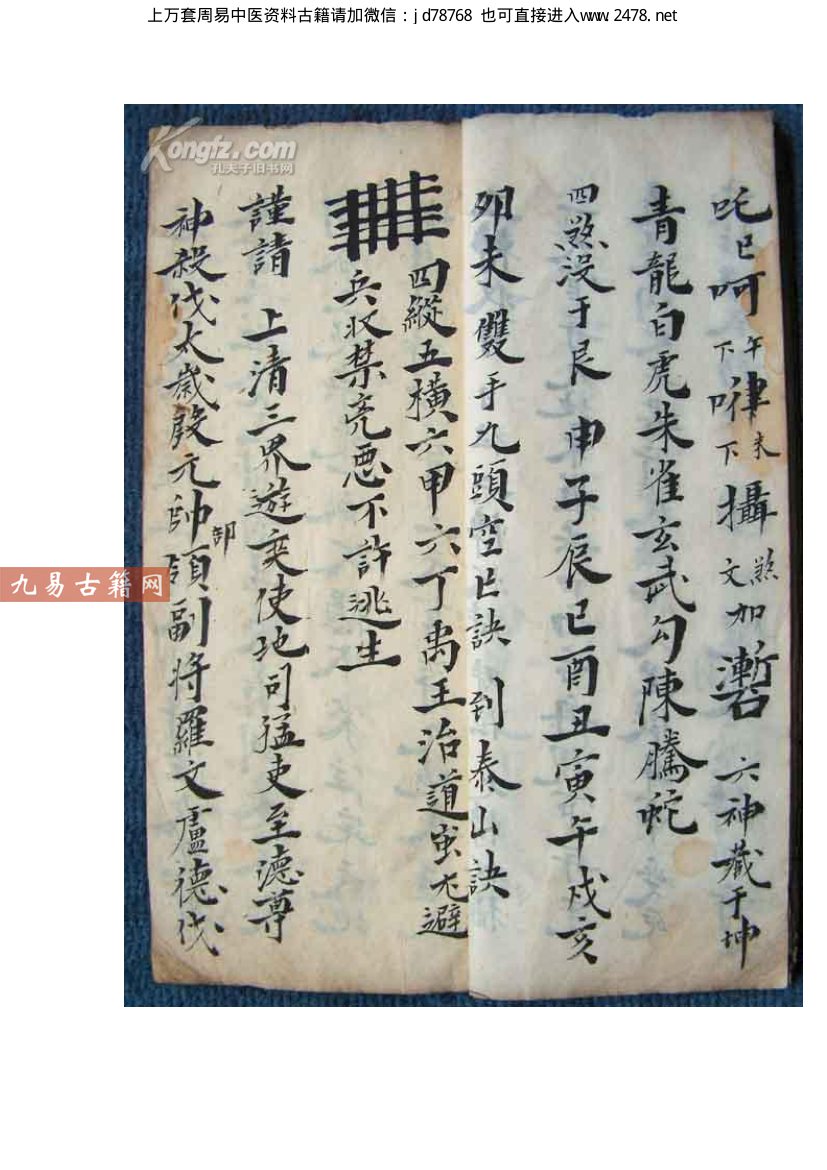 上万套周易中医资料古籍请加微信：jd78768 也可直接进入www.2478.net
Kongfz.com
孔夫子旧书网
九易古籍网
吒巳呵午下㗚未下攝煞文加 六神藏于坤
青龍白虎朱雀玄武勾陳騰蛇
四煞没于艮 申子辰巳酉丑寅午戍亥
卯未雙手九頭空亡訣 到泰山訣
四縱五横六甲六丁禹王治道蚩尤避
兵収禁亮恶不許逃生
謹請 上清三界遊奕使地司猛吏至德尊
神殺伐太歲殷元帥部領副将羅文盧德伐